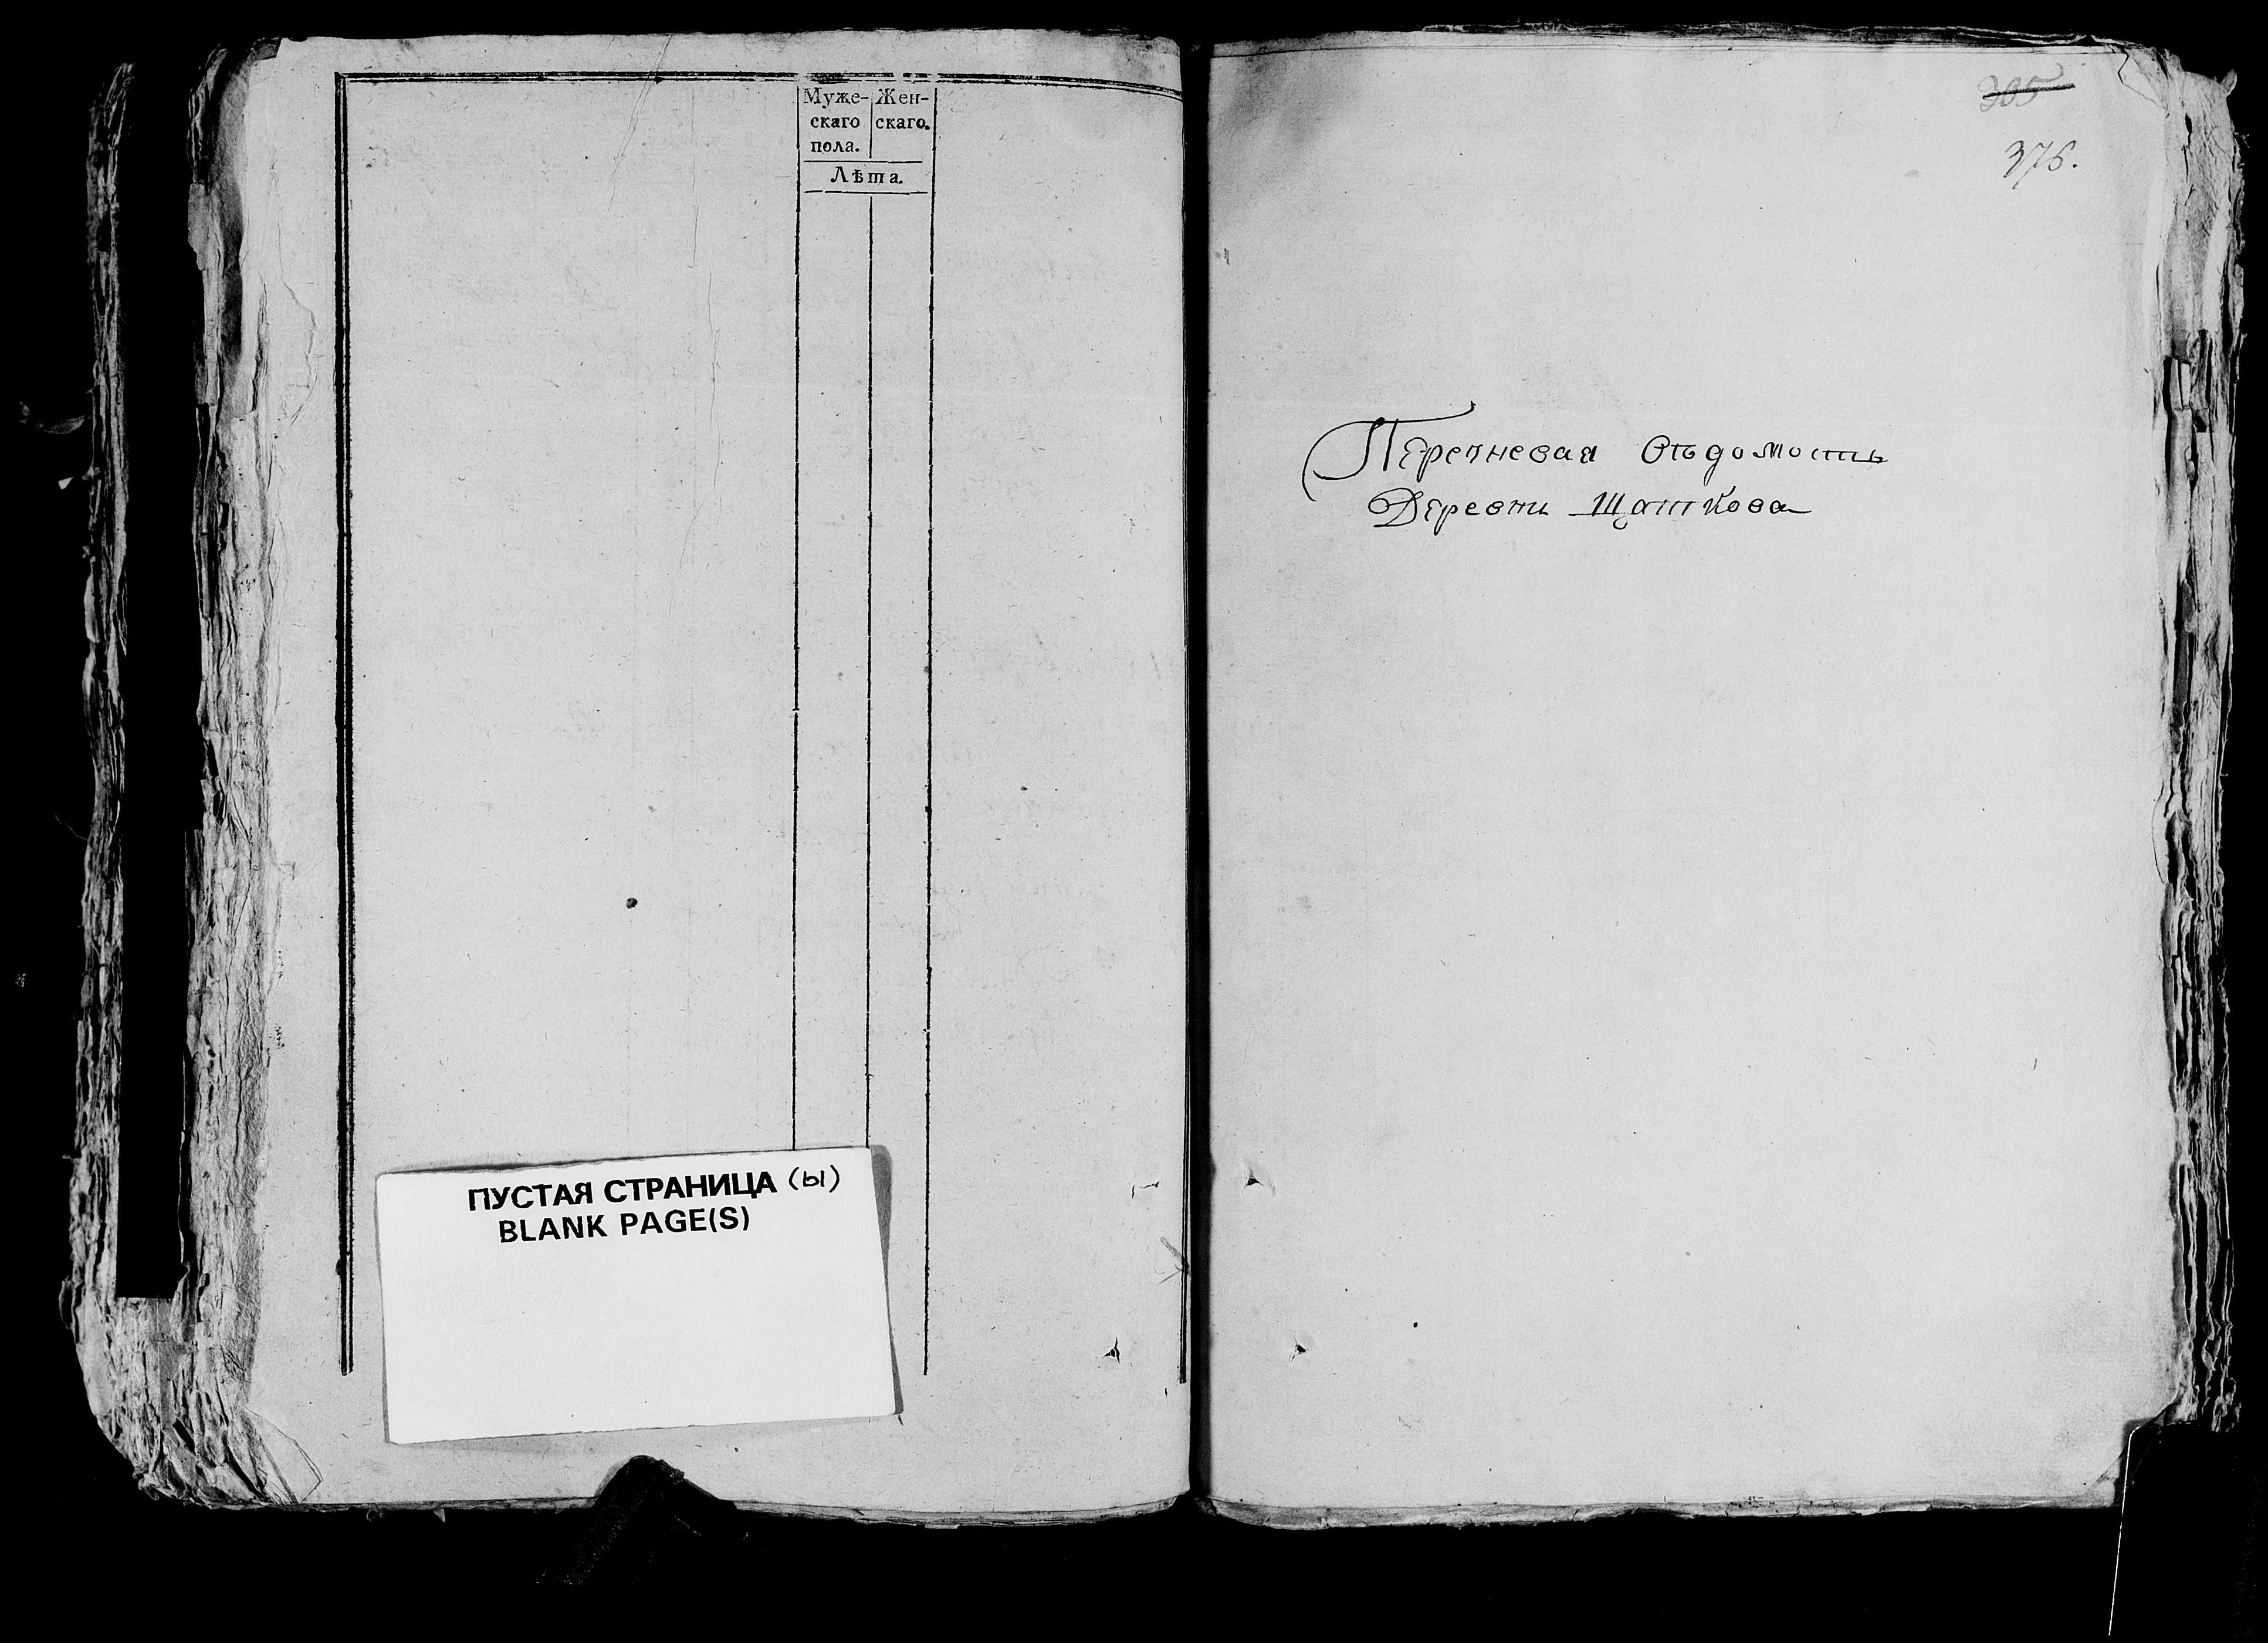 Муже-
скаго
пола.
Жен-
скаго.
Лѣта.
ПУСТАЯ СТРАНИЦА (Ы)
BLANK PAGE(S)
305
376.
Перечневая Вѣдомость
Деревни Щаткова